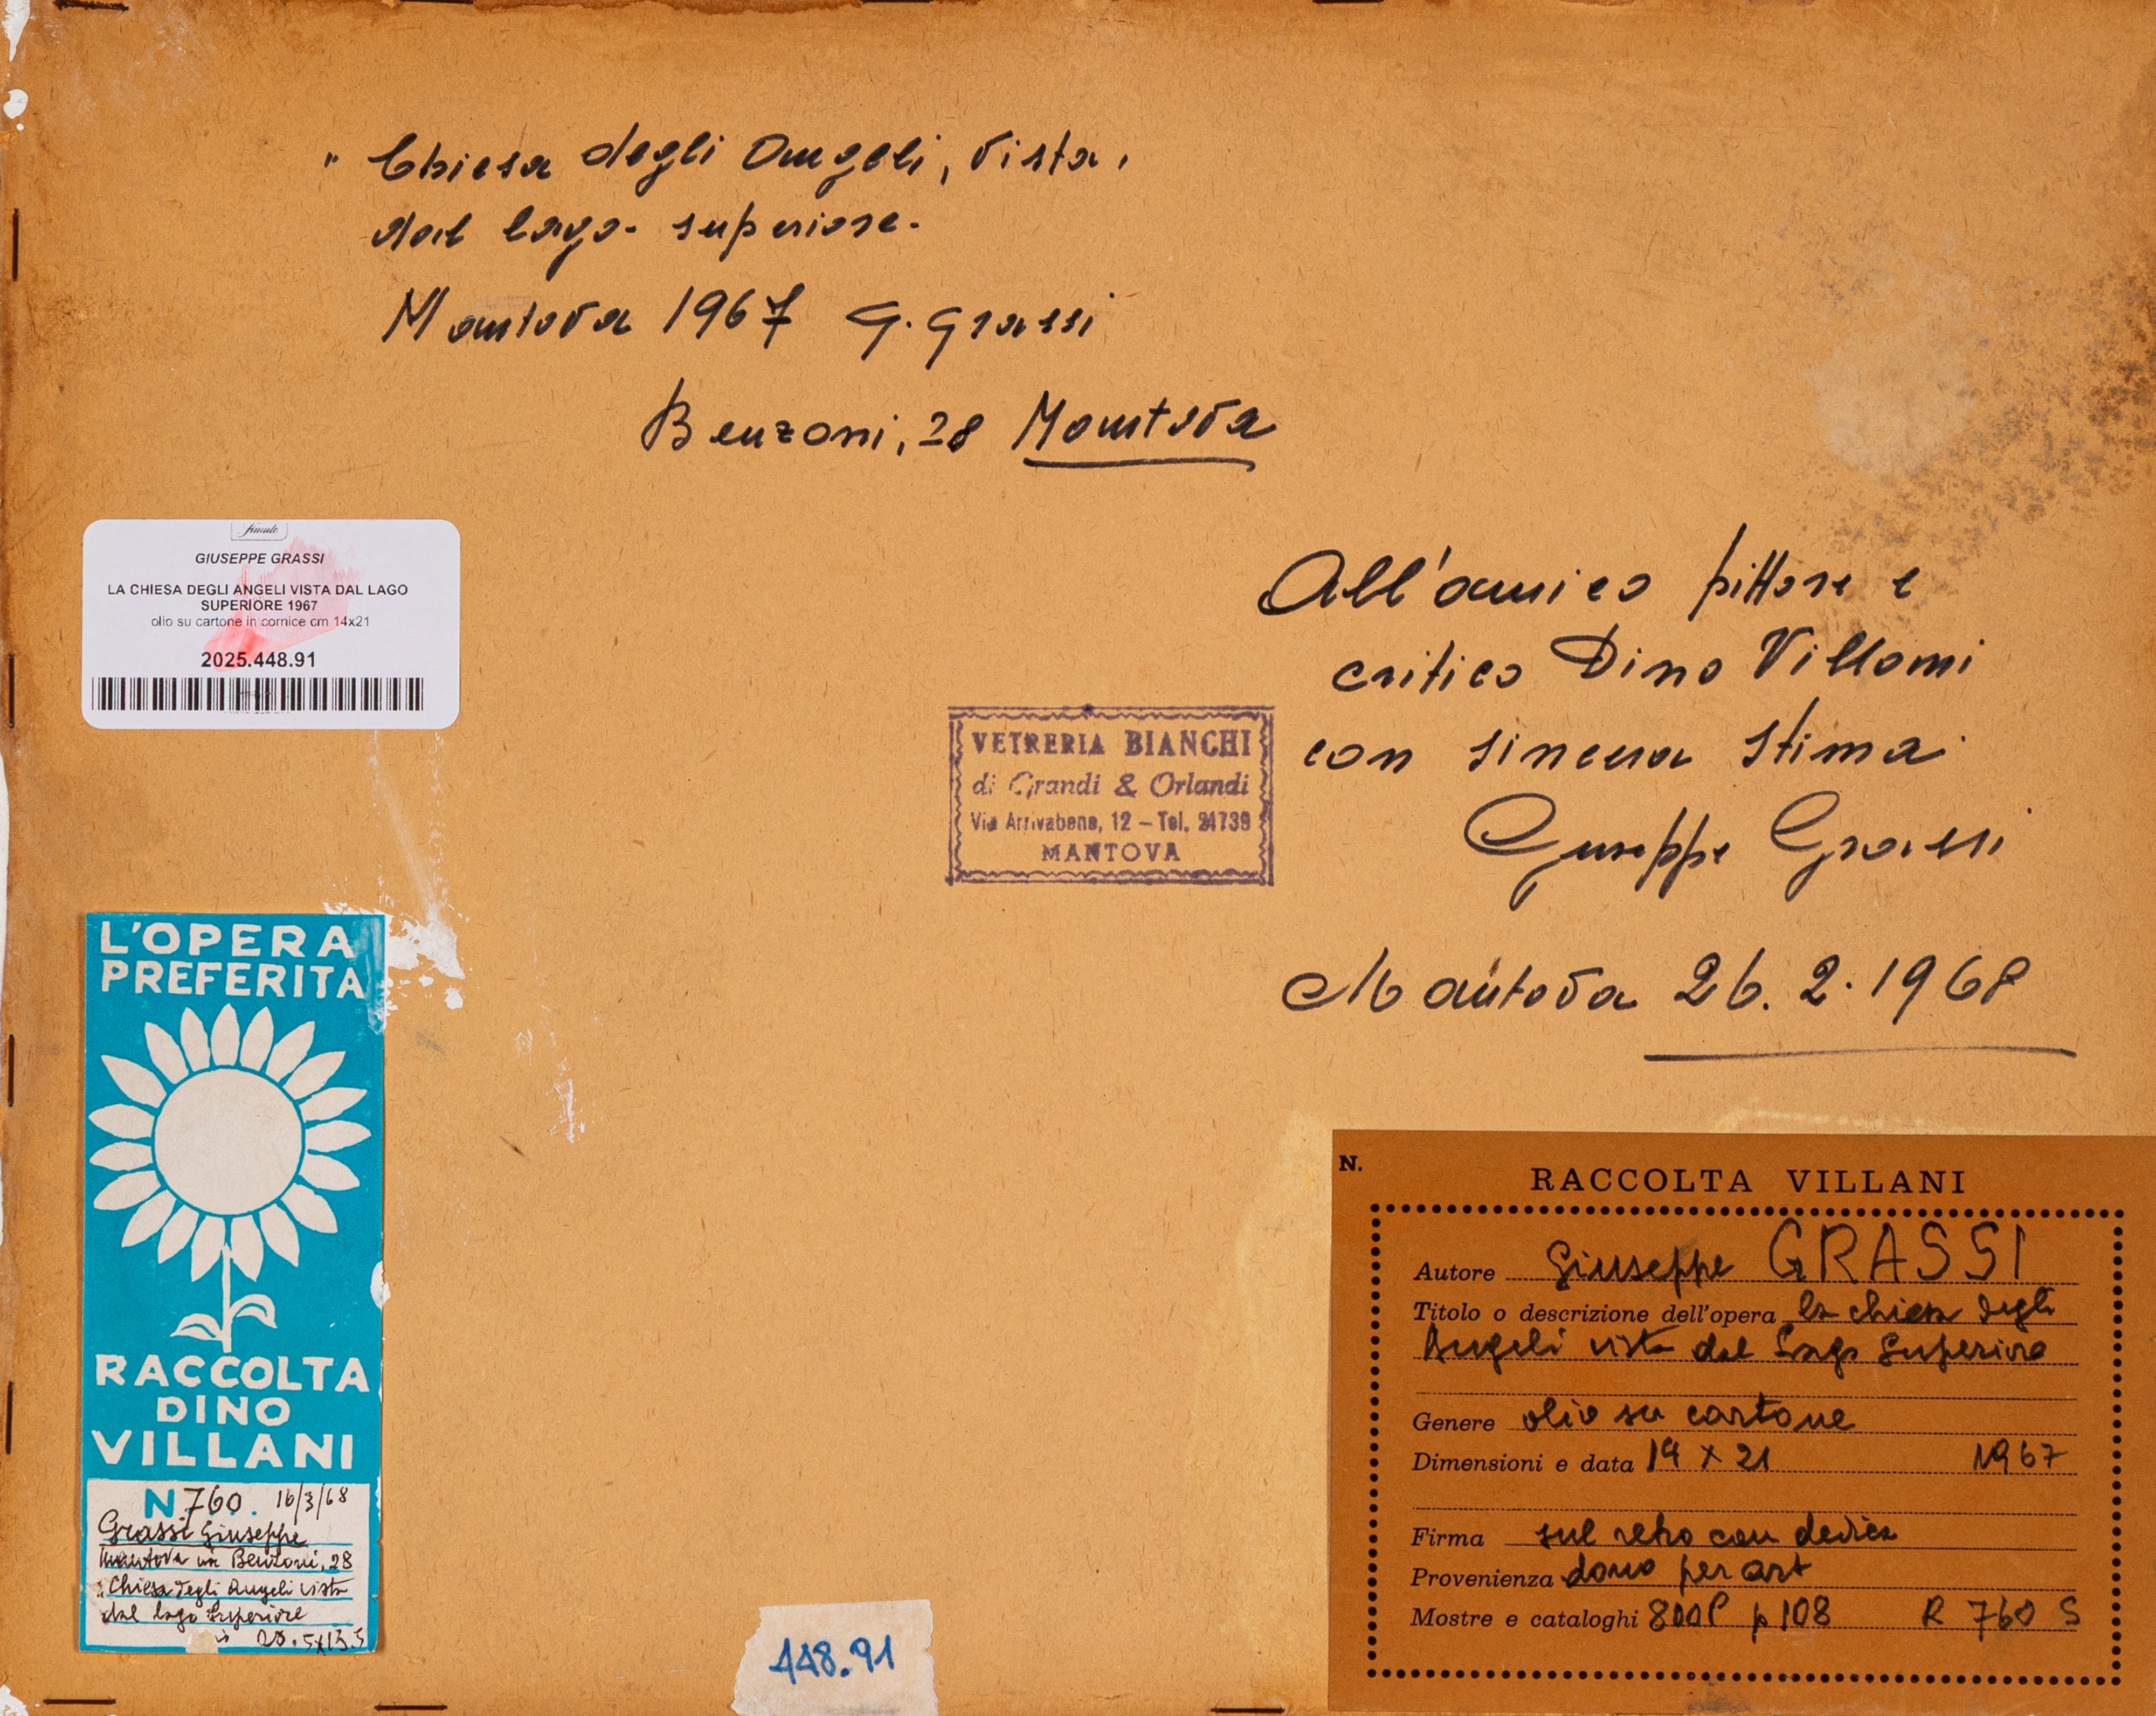 " Chiesa degli Angeli, vista,
dal lago superiore.
Mantova 1967 G. Grassi
Benzoni, 28 Mantova
Finarte
GIUSEPPE GRASSI
LA CHIESA DEGLI ANGELI VISTA DAL LAGO
SUPERIORE 1967
olio su cartone in cornice cm 14x21
2025.448.91
All'amico pittore e
critico Dino Villani
con sincera stima
Giuseppe Grassi
Mantova 26.2.1968
VETRERIA BIANCHI
di Grandi & Orlandi
Via Arrivabene, 12 – Tel. 24739
MANTOVA
L'OPERA
PREFERITA
RACCOLTA
DINO
VILLANI
N 760. 16/3/68
Grassi Giuseppe
Mantova via Benzoni, 28
"Chiesa degli Angeli vista
dal lago superiore
5x13.5
448.91
N.
RACCOLTA VILLANI
Autore Giuseppe GRASSI
Titolo o descrizione dell'opera la chiesa degli
Angeli vista dal Lago Superiore
Genere olio su cartone
Dimensioni e data 14 x 21 1967
Firma sul retro con dedica
Provenienza dono per art
Mostre e cataloghi 800P p 108 R 760 S